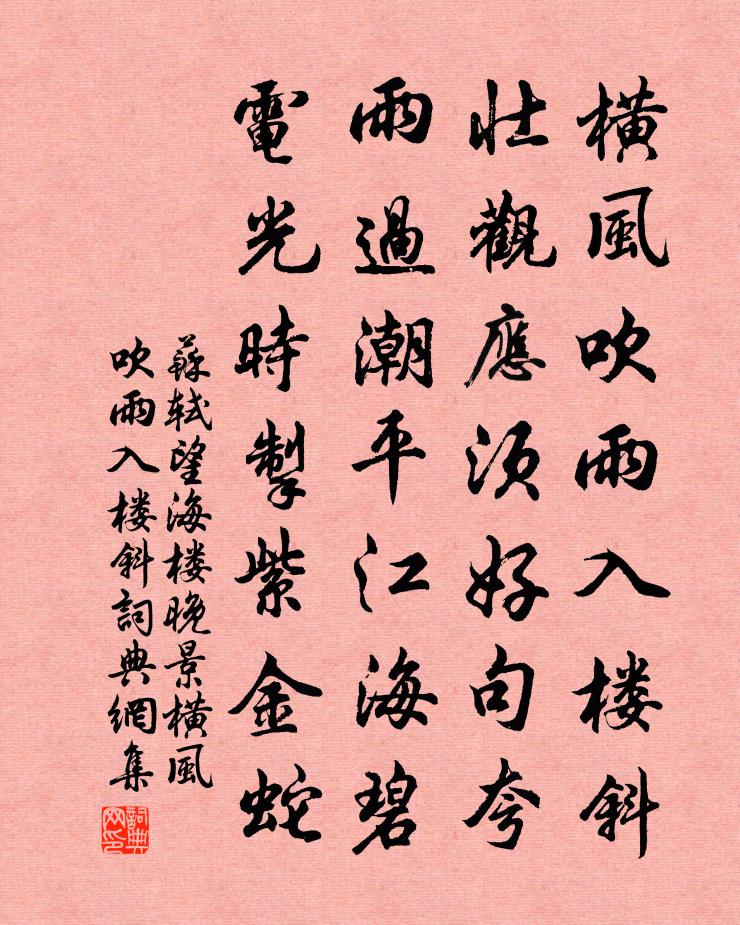 横風吹雨入楼斜
壮觀應須好句夸
雨過潮平江海碧
電光時掣紫金蛇
蘇軾望海楼晚景横風
吹雨入楼斜詞典網集
詞典
网印